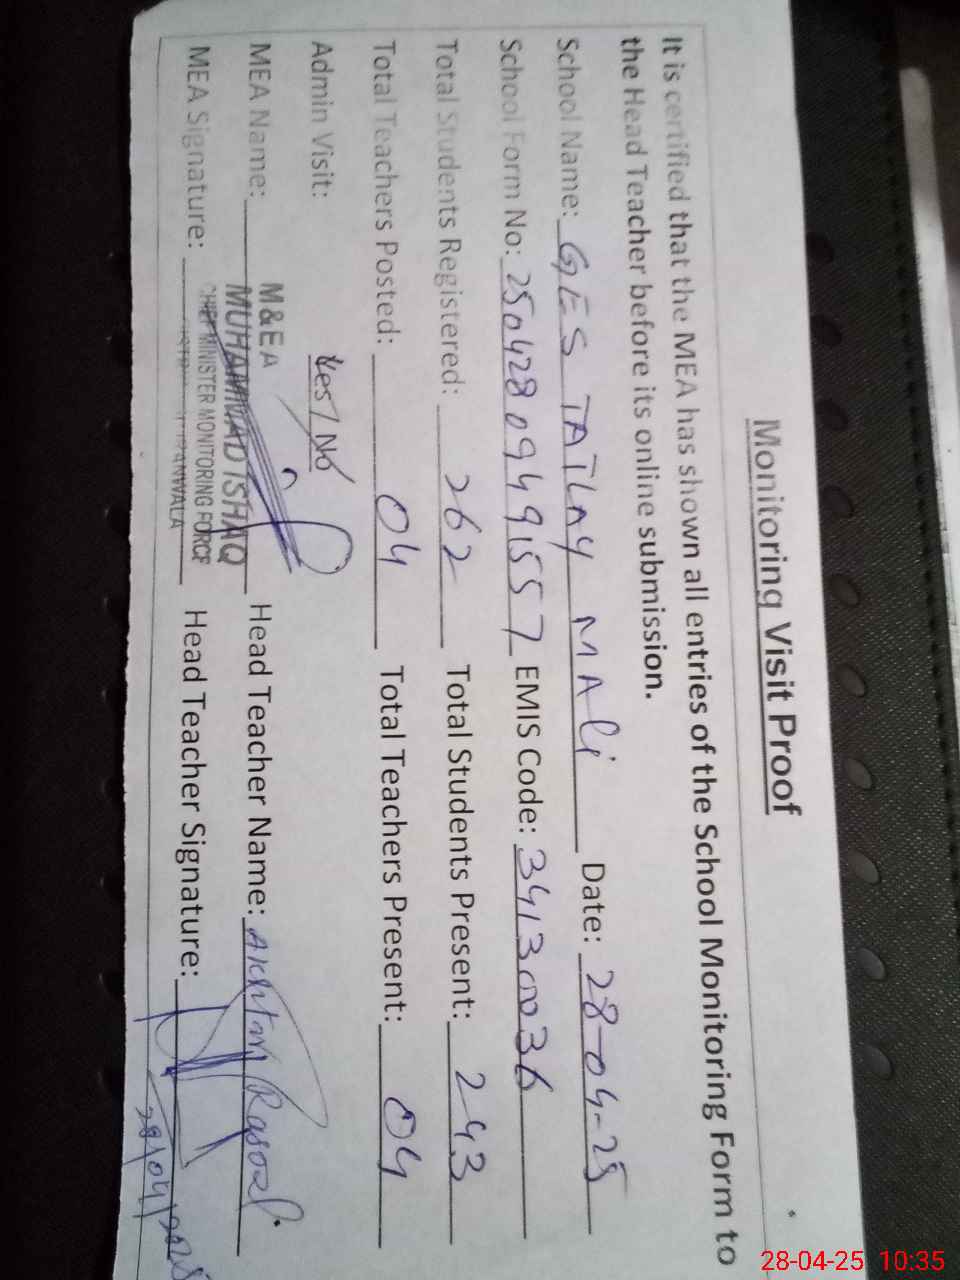 Monitoring Visit Proof
It is certified that the MEA has shown all entries of the School Monitoring Form to
the Head Teacher before its online submission.
School Name: GES TATLAY MALi Date: 28-04-25
School Form No: 25042809499557 EMIS Code: 34130036
Total Students Registered: 262 Total Students Present: 243
Total Teachers Posted: 04 Total Teachers Present: 04
Admin Visit: Yes / No
M&EA
MEA Name: MUHAMMAD ISHAQ Head Teacher Name: Akhtar Rasool
CHIEF MINISTER MONITORING FORCE
MEA Signature: Head Teacher Signature:
28/04/2025
28-04-25 10:35